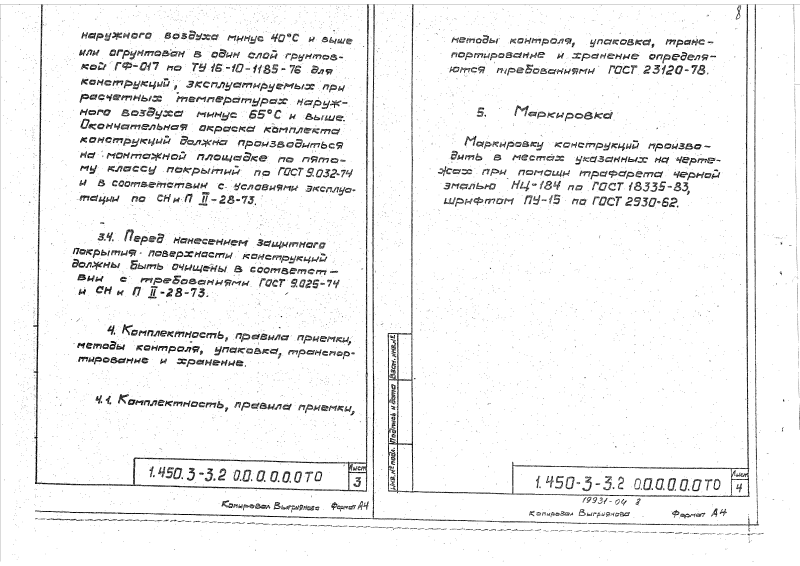 наружного воздуха минус 40°С и выше
или огрунтован в один слой грунтов-
кой ГФ-017 по ТУ 16-10-1185-76 для
конструкций, эксплуатируемых при
расчетных температурах наруж-
ного воздуха минус 65°С и выше.
Окончательная окраска комплекта
конструкций должна производиться
на монтажной площадке по пято-
му классу покрытий по ГОСТ 9.032-74
и в соответствии с условиями эксплуа-
тации по СНиП II-28-73.
3.4. Перед нанесением защитного
покрытия поверхности конструкций
должны быть очищены в соответст-
вии с требованиями ГОСТ 9.025-74
и СНиП II-28-73.
4. Комплектность, правила приемки,
методы контроля, упаковка, транспор-
тирование и хранение.
4.1. Комплектность, правила приемки,
1.450.3-3.2 0.0.0.0.0ТО
Лист
3
Копировал Выгриянова Формат А4
8
методы контроля, упаковка, транс-
портирование и хранение определя-
ются требованиями ГОСТ 23120-78.
5. Маркировка
Маркировку конструкций произво-
дить в местах указанных на черте-
жах при помощи трафарета черной
эмалью НЦ-184 по ГОСТ 18335-83,
шрифтом ПУ-15 по ГОСТ 2930-62.
Взам. инв. №
Подпись и дата
Инв. № подл.
1.450-3-3.2 0.0.0.0.0ТО
Лист
4
19931-04 8
Копировал Выгриянова Формат А4